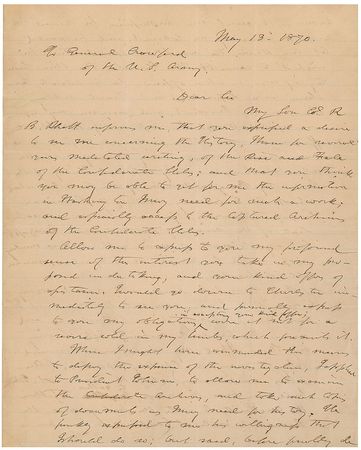 May 13th 1870.
To General Crawford
of the U. S. Army.
Dear Sir
My Son Col R
B. Rhett informs me, that you expressed a desire
to see me concerning the History, I have for several
years meditated writing, of the Rise and Fall
of the Confederate States; and that you think
you may be able to get for me the information
in Washington I may need for such a work;
and especially access to the Captured Archives
of the Confederate States.
Allow me to express to you my profound
sense of the interest you take in my pro-
posed undertaking, and your kind offer of
assistance. I would go down to Charleston im-
mediately to see you, and personally express
to you my obligations in accepting your kind offer, were it not for a
in my which prevents it.
When I might have commanded the means
to defray the expense of the investigation, I applied
to President Johnson, to allow me to examine
the Confederate Archives, and take such copies
of documents as I may need for history. He
frankly expressed to me his willingness that
I should do so; but said,